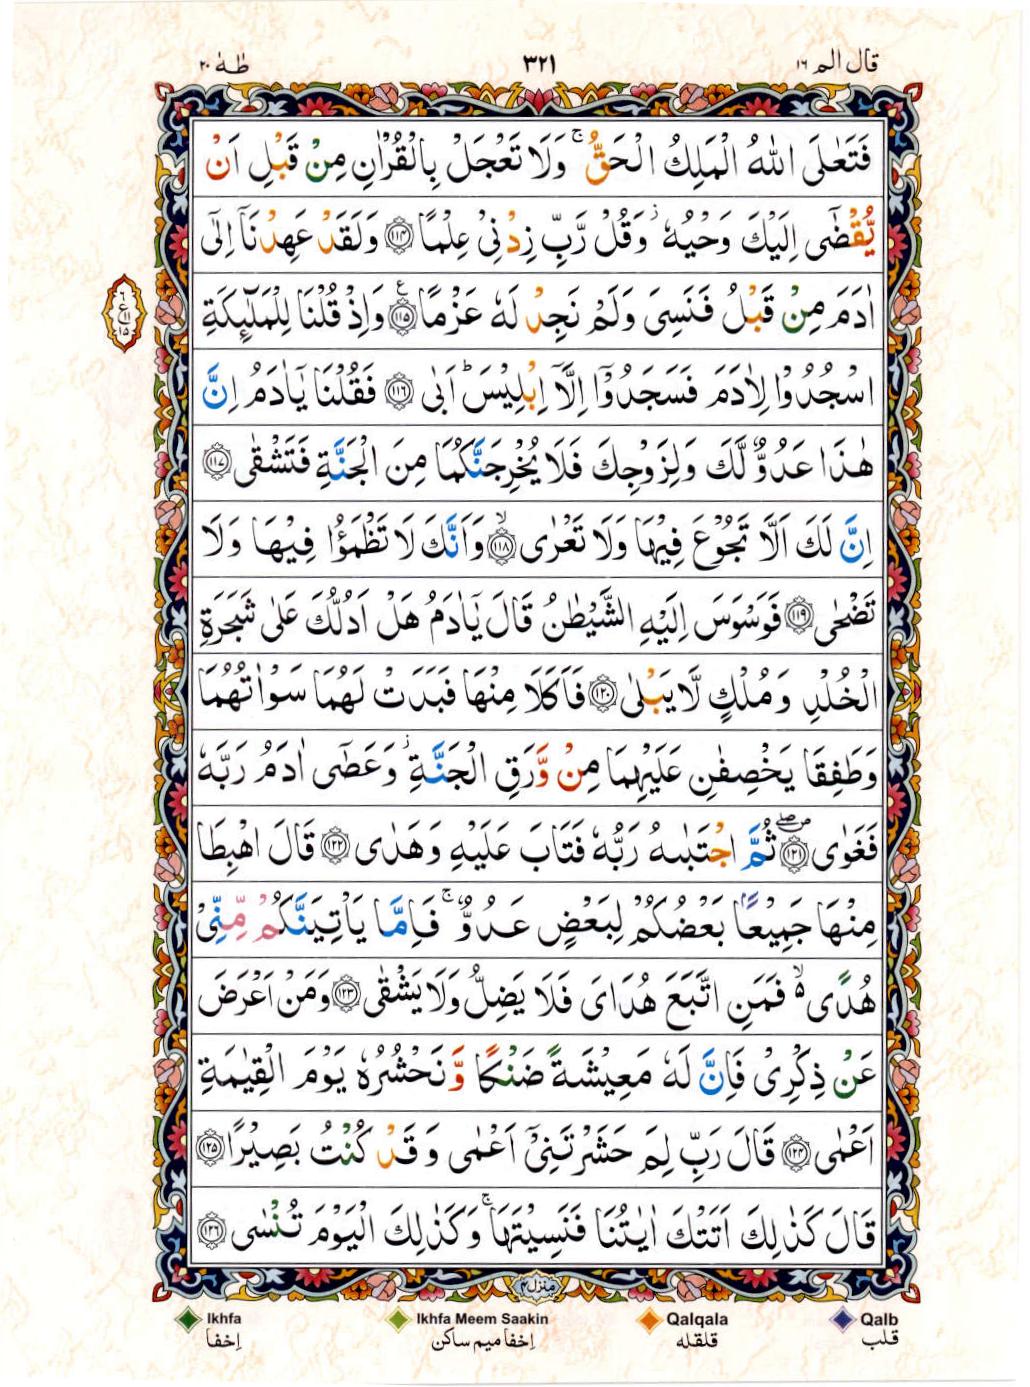 قال الم ١٦
٣٢١
طٰهٰ ٢٠
فَتَعٰلَى اللّٰهُ الْمَلِكُ الْحَقُّ ۚ وَلَا تَعْجَلْ بِالْقُرْاٰنِ مِنْ قَبْلِ اَنْ
يُّقْضٰٓى اِلَيْكَ وَحْيُهٗ ۫ وَقُلْ رَّبِّ زِدْنِيْ عِلْمًا ﴿۱۱۴﴾ وَلَقَدْ عَهِدْنَاۤ اِلٰۤى
اٰدَمَ مِنْ قَبْلُ فَنَسِىَ وَلَمْ نَجِدْ لَهٗ عَزْمًا ﴿۱۱۵﴾ ع وَاِذْ قُلْنَا لِلْمَلٰٓئِكَةِ
اسْجُدُوْا لِاٰدَمَ فَسَجَدُوْۤا اِلَّاۤ اِبْلِيْسَ ؕ اَبٰى ﴿۱۱۶﴾ فَقُلْنَا يٰۤاٰدَمُ اِنَّ
هٰذَا عَدُوٌّ لَّكَ وَلِزَوْجِكَ فَلَا يُخْرِجَنَّكُمَا مِنَ الْجَنَّةِ فَتَشْقٰى ﴿۱۱۷﴾
اِنَّ لَكَ اَلَّا تَجُوْعَ فِيْهَا وَلَا تَعْرٰى ﴿۱۱۸﴾ ۙ وَاَنَّكَ لَا تَظْمَؤُا فِيْهَا وَلَا
تَضْحٰى ﴿۱۱۹﴾ فَوَسْوَسَ اِلَيْهِ الشَّيْطٰنُ قَالَ يٰۤاٰدَمُ هَلْ اَدُلُّكَ عَلٰى شَجَرَةِ
الْخُلْدِ وَمُلْكٍ لَّا يَبْلٰى ﴿۱۲۰﴾ فَاَكَلَا مِنْهَا فَبَدَتْ لَهُمَا سَوْاٰتُهُمَا
وَطَفِقَا يَخْصِفٰنِ عَلَيْهِمَا مِنْ وَّرَقِ الْجَنَّةِ ۫ وَعَصٰۤى اٰدَمُ رَبَّهٗ
فَغَوٰى ﴿۱۲۱﴾ ۖ ثُمَّ اجْتَبٰىهُ رَبُّهٗ فَتَابَ عَلَيْهِ وَهَدٰى ﴿۱۲۲﴾ قَالَ اهْبِطَا
مِنْهَا جَمِيْعًۢا بَعْضُكُمْ لِبَعْضٍ عَدُوٌّ ۚ فَاِمَّا يَاْتِيَنَّكُمْ مِّنِّىْ
هُدًى ۙ ٥ فَمَنِ اتَّبَعَ هُدَاىَ فَلَا يَضِلُّ وَلَا يَشْقٰى ﴿۱۲۳﴾ وَمَنْ اَعْرَضَ
عَنْ ذِكْرِىْ فَاِنَّ لَهٗ مَعِيْشَةً ضَنْكًا وَّنَحْشُرُهٗ يَوْمَ الْقِيٰمَةِ
اَعْمٰى ﴿۱۲۴﴾ قَالَ رَبِّ لِمَ حَشَرْتَنِىْۤ اَعْمٰى وَقَدْ كُنْتُ بَصِيْرًا ﴿۱۲۵﴾
قَالَ كَذٰلِكَ اَتَتْكَ اٰيٰتُنَا فَنَسِيْتَهَا ۚ وَكَذٰلِكَ الْيَوْمَ تُنْسٰى ﴿۱۲۶﴾
٦
ع
١١
١٥
منزل ٤
Ikhfa
اِخفا
Ikhfa Meem Saakin
اِخفا میم ساکن
Qalqala
قلقله
Qalb
قلب